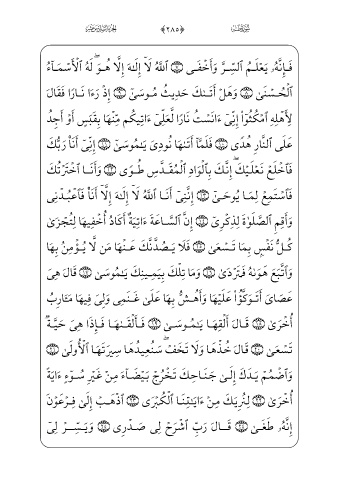 ﴿٢٨٥﴾
فَإِنَّهُۥ يَعْلَمُ ٱلسِّرَّ وَأَخْفَى ۝ ٱللَّهُ لَآ إِلَٰهَ إِلَّا هُوَ ۖ لَهُ ٱلْأَسْمَآءُ
ٱلْحُسْنَىٰ ۝ وَهَلْ أَتَىٰكَ حَدِيثُ مُوسَىٰٓ ۝ إِذْ رَءَا نَارًا فَقَالَ
لِأَهْلِهِ ٱمْكُثُوٓا۟ إِنِّىٓ ءَانَسْتُ نَارًا لَّعَلِّىٓ ءَاتِيكُم مِّنْهَا بِقَبَسٍ أَوْ أَجِدُ
عَلَى ٱلنَّارِ هُدًى ۝ فَلَمَّآ أَتَىٰهَا نُودِىَ يَٰمُوسَىٰٓ ۝ إِنِّىٓ أَنَا۠ رَبُّكَ
فَٱخْلَعْ نَعْلَيْكَ ۖ إِنَّكَ بِٱلْوَادِ ٱلْمُقَدَّسِ طُوًى ۝ وَأَنَا ٱخْتَرْتُكَ
فَٱسْتَمِعْ لِمَا يُوحَىٰٓ ۝ إِنَّنِىٓ أَنَا ٱللَّهُ لَآ إِلَٰهَ إِلَّآ أَنَا۠ فَٱعْبُدْنِى
وَأَقِمِ ٱلصَّلَوٰةَ لِذِكْرِىٓ ۝ إِنَّ ٱلسَّاعَةَ ءَاتِيَةٌ أَكَادُ أُخْفِيهَا لِتُجْزَىٰ
كُلُّ نَفْسٍۭ بِمَا تَسْعَىٰ ۝ فَلَا يَصُدَّنَّكَ عَنْهَا مَن لَّا يُؤْمِنُ بِهَا
وَٱتَّبَعَ هَوَىٰهُ فَتَرْدَىٰ ۝ وَمَا تِلْكَ بِيَمِينِكَ يَٰمُوسَىٰ ۝ قَالَ هِىَ
عَصَاىَ أَتَوَكَّؤُا۟ عَلَيْهَا وَأَهُشُّ بِهَا عَلَىٰ غَنَمِى وَلِىَ فِيهَا مَـَٔارِبُ
أُخْرَىٰ ۝ قَالَ أَلْقِهَا يَٰمُوسَىٰ ۝ فَأَلْقَىٰهَا فَإِذَا هِىَ حَيَّةٌ
تَسْعَىٰ ۝ قَالَ خُذْهَا وَلَا تَخَفْ ۖ سَنُعِيدُهَا سِيرَتَهَا ٱلْأُولَىٰ ۝
وَٱضْمُمْ يَدَكَ إِلَىٰ جَنَاحِكَ تَخْرُجْ بَيْضَآءَ مِنْ غَيْرِ سُوٓءٍ ءَايَةً
أُخْرَىٰ ۝ لِنُرِيَكَ مِنْ ءَايَٰتِنَا ٱلْكُبْرَى ۝ ٱذْهَبْ إِلَىٰ فِرْعَوْنَ
إِنَّهُۥ طَغَىٰ ۝ قَالَ رَبِّ ٱشْرَحْ لِى صَدْرِى ۝ وَيَسِّرْ لِىٓ